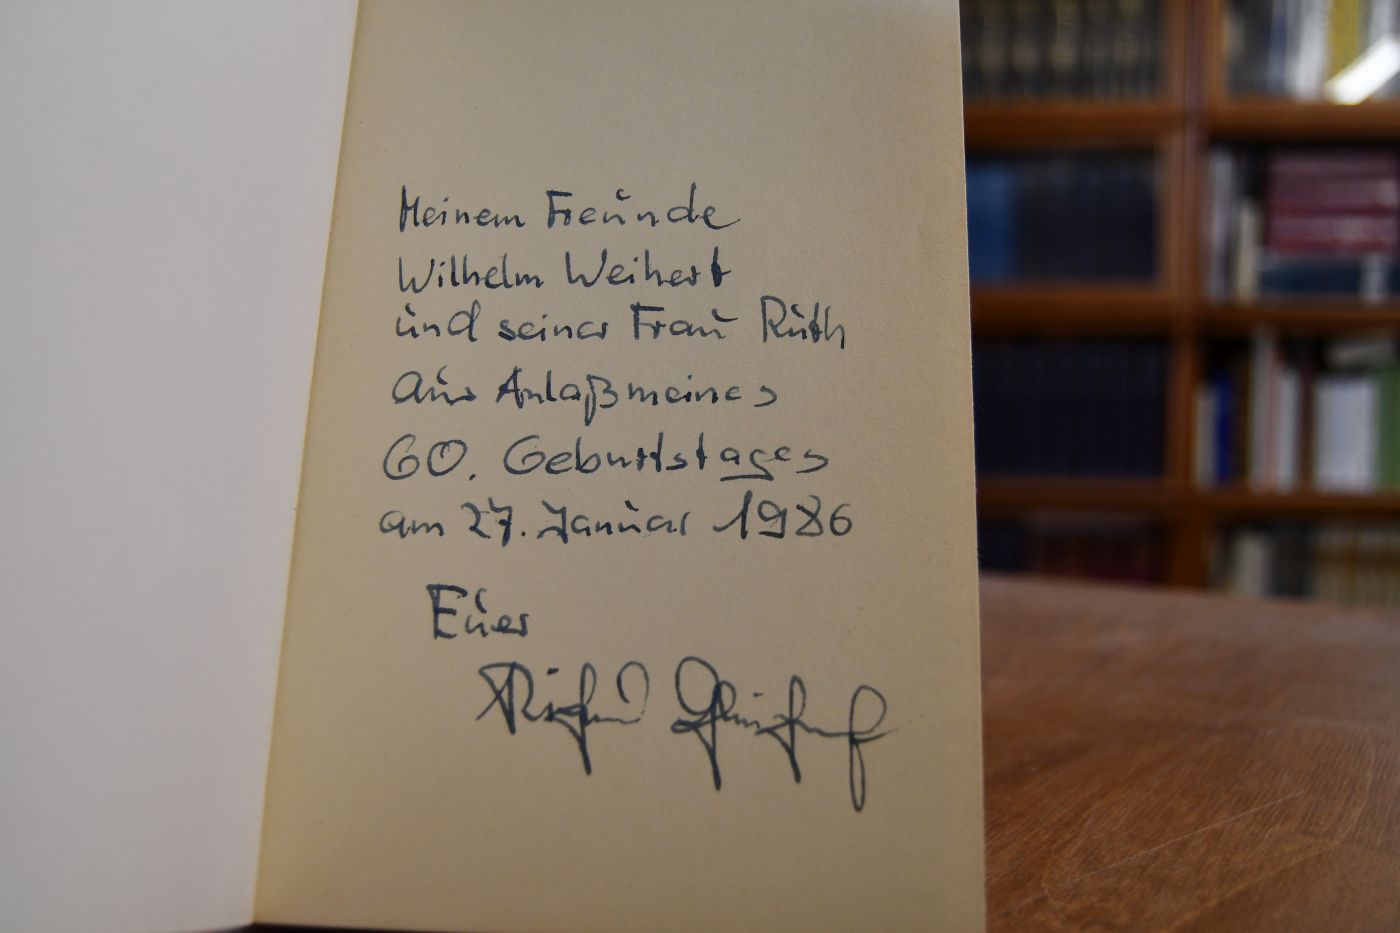 Meinem Freunde
Wilhelm Weihert
und seiner Frau Ruth
aus Anlaß meines
60. Geburtstages
am 27. Januar 1986
Euer
Richard